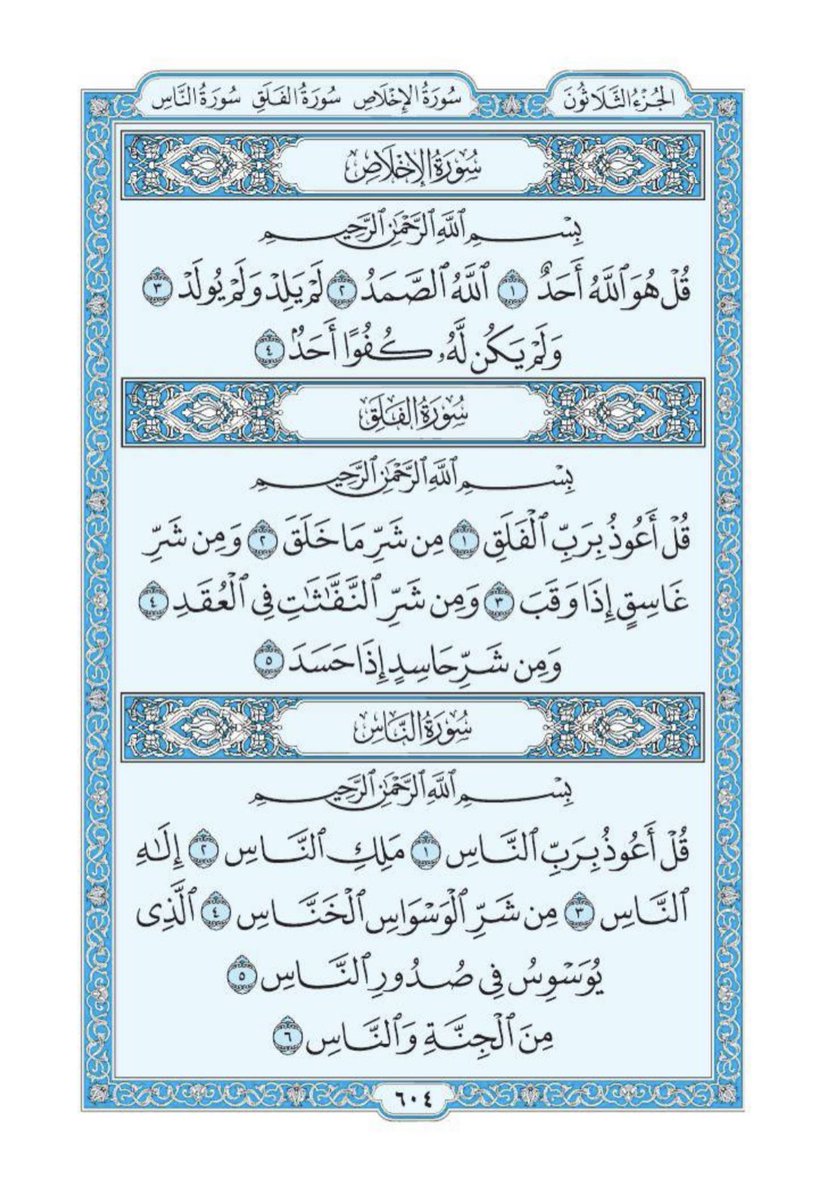 الجُزْءُ الثَّلَاثُونَ
سُورَةُ الإِخْلَاصِ سُورَةُ الفَلَقِ سُورَةُ النَّاسِ
سُورَةُ الإِخْلَاصِ
بِسْمِ ٱللَّهِ ٱلرَّحْمَٰنِ ٱلرَّحِيمِ
قُلْ هُوَ ٱللَّهُ أَحَدٌ ١ ٱللَّهُ ٱلصَّمَدُ ٢ لَمْ يَلِدْ وَلَمْ يُولَدْ ٣
وَلَمْ يَكُن لَّهُۥ كُفُوًا أَحَدٌۢ ٤
سُورَةُ الفَلَقِ
بِسْمِ ٱللَّهِ ٱلرَّحْمَٰنِ ٱلرَّحِيمِ
قُلْ أَعُوذُ بِرَبِّ ٱلْفَلَقِ ١ مِن شَرِّ مَا خَلَقَ ٢ وَمِن شَرِّ
غَاسِقٍ إِذَا وَقَبَ ٣ وَمِن شَرِّ ٱلنَّفَّٰثَٰتِ فِى ٱلْعُقَدِ ٤
وَمِن شَرِّ حَاسِدٍ إِذَا حَسَدَ ٥
سُورَةُ النَّاسِ
بِسْمِ ٱللَّهِ ٱلرَّحْمَٰنِ ٱلرَّحِيمِ
قُلْ أَعُوذُ بِرَبِّ ٱلنَّاسِ ١ مَلِكِ ٱلنَّاسِ ٢ إِلَٰهِ
ٱلنَّاسِ ٣ مِن شَرِّ ٱلْوَسْوَاسِ ٱلْخَنَّاسِ ٤ ٱلَّذِى
يُوَسْوِسُ فِى صُدُورِ ٱلنَّاسِ ٥
مِنَ ٱلْجِنَّةِ وَٱلنَّاسِ ٦
٦٠٤